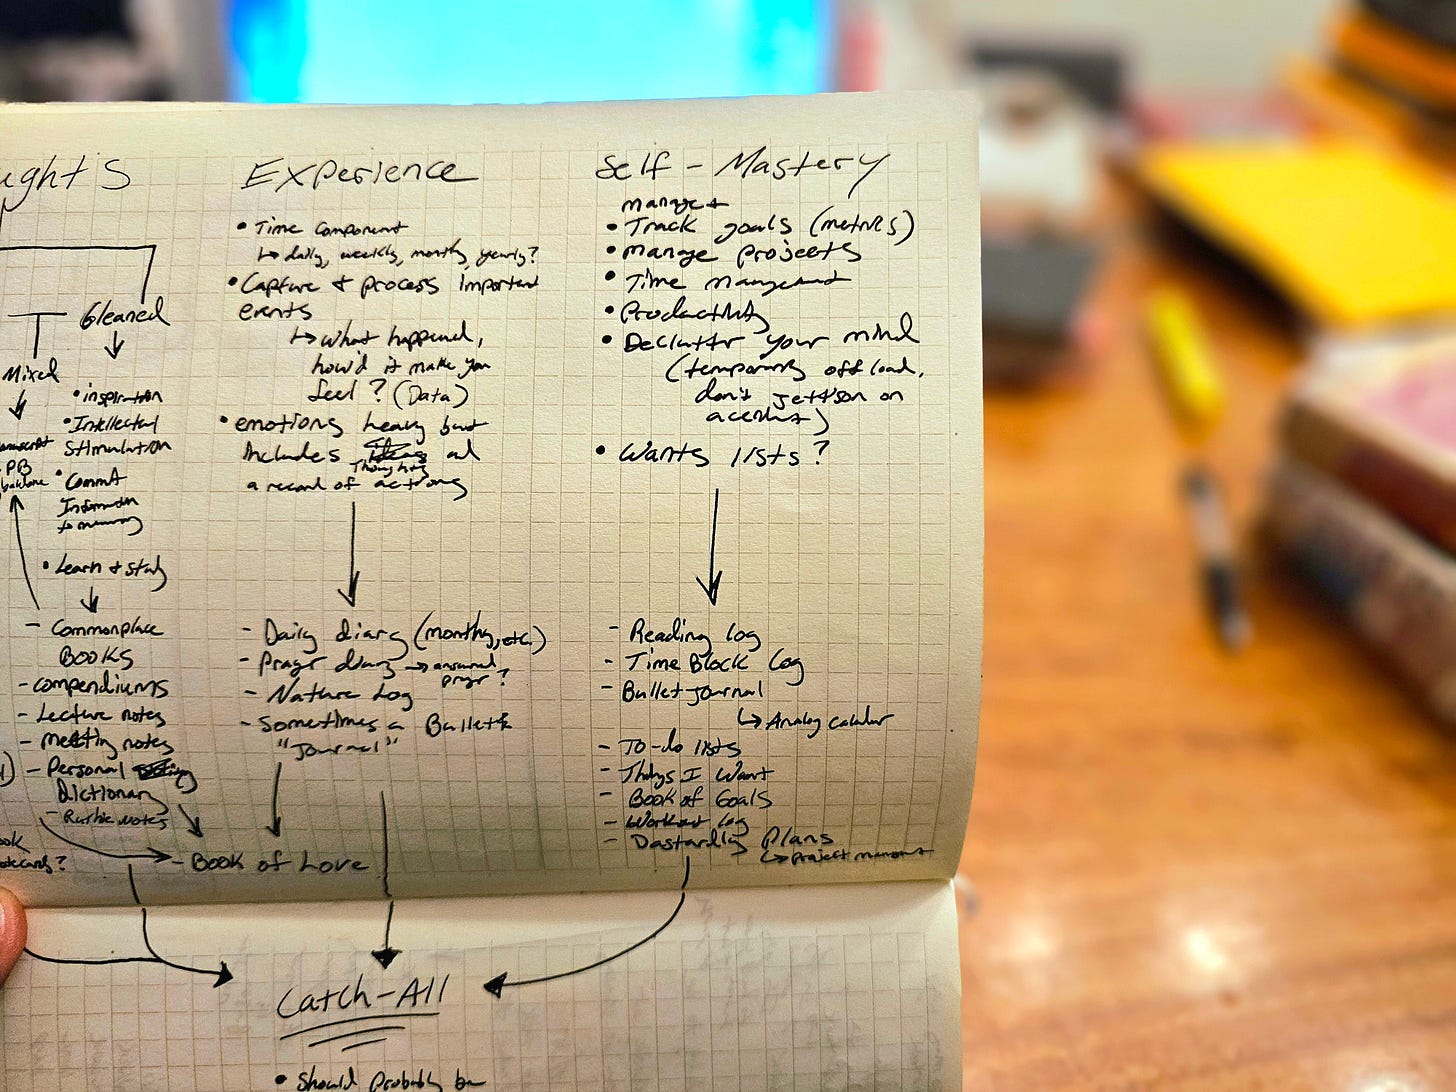 ughts
Gleaned
Mixed
• inspiration
• Intellectual
Stimulation
PB
• Commit
Information
to memory
• Learn + study
- Commonplace
Books
- compendiums
- Lecture notes
- meeting notes
- Personal
Dictionary
- Ruthie notes
ook
otecards?
Experience
• Time Component
↳ daily, weekly, monthly, yearly?
• Capture + process Important
events
↳ what happened,
how'd it make you
feel? (Data)
• emotions heavy but
Includes Thoughts and
a record of actions
- Daily diary (monthly, etc.)
- Prayer diary → answered
prayer?
- Nature Log
- Sometimes a Bullet
"Journal"
- Book of Love
Self-Mastery
manage +
• Track goals (metrics)
• manage projects
• Time management
• Productivity
• Declutter your mind
(temporary offload,
don't jettison on
accident)
• Wants lists?
- Reading log
- Time Block Log
- Bullet journal
↳ Analog calendar
- To-do lists
- Things I Want
- Book of Goals
- Workout log
- Dastardly Plans
↳ project management
Catch-All
• Should probably be